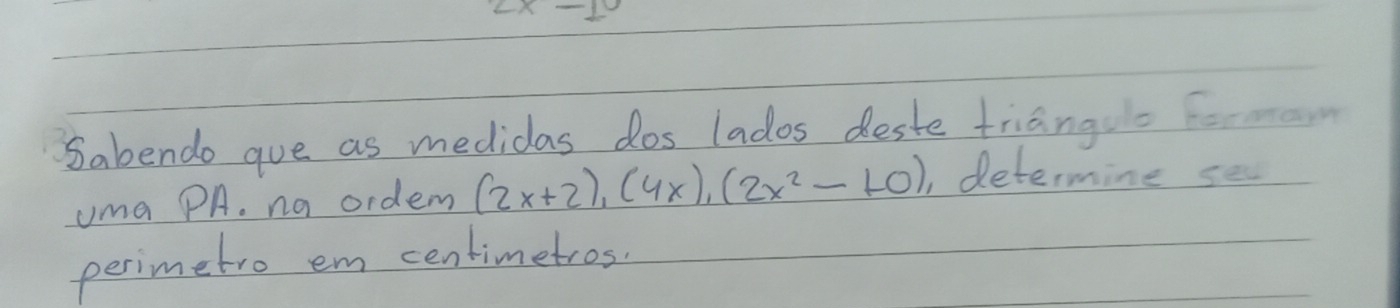 2x - 10
Sabendo que as medidas dos lados deste triângulo formam
uma PA. na ordem (2x+2), (4x), (2x² - 10), determine seu
perimetro em centimetros.